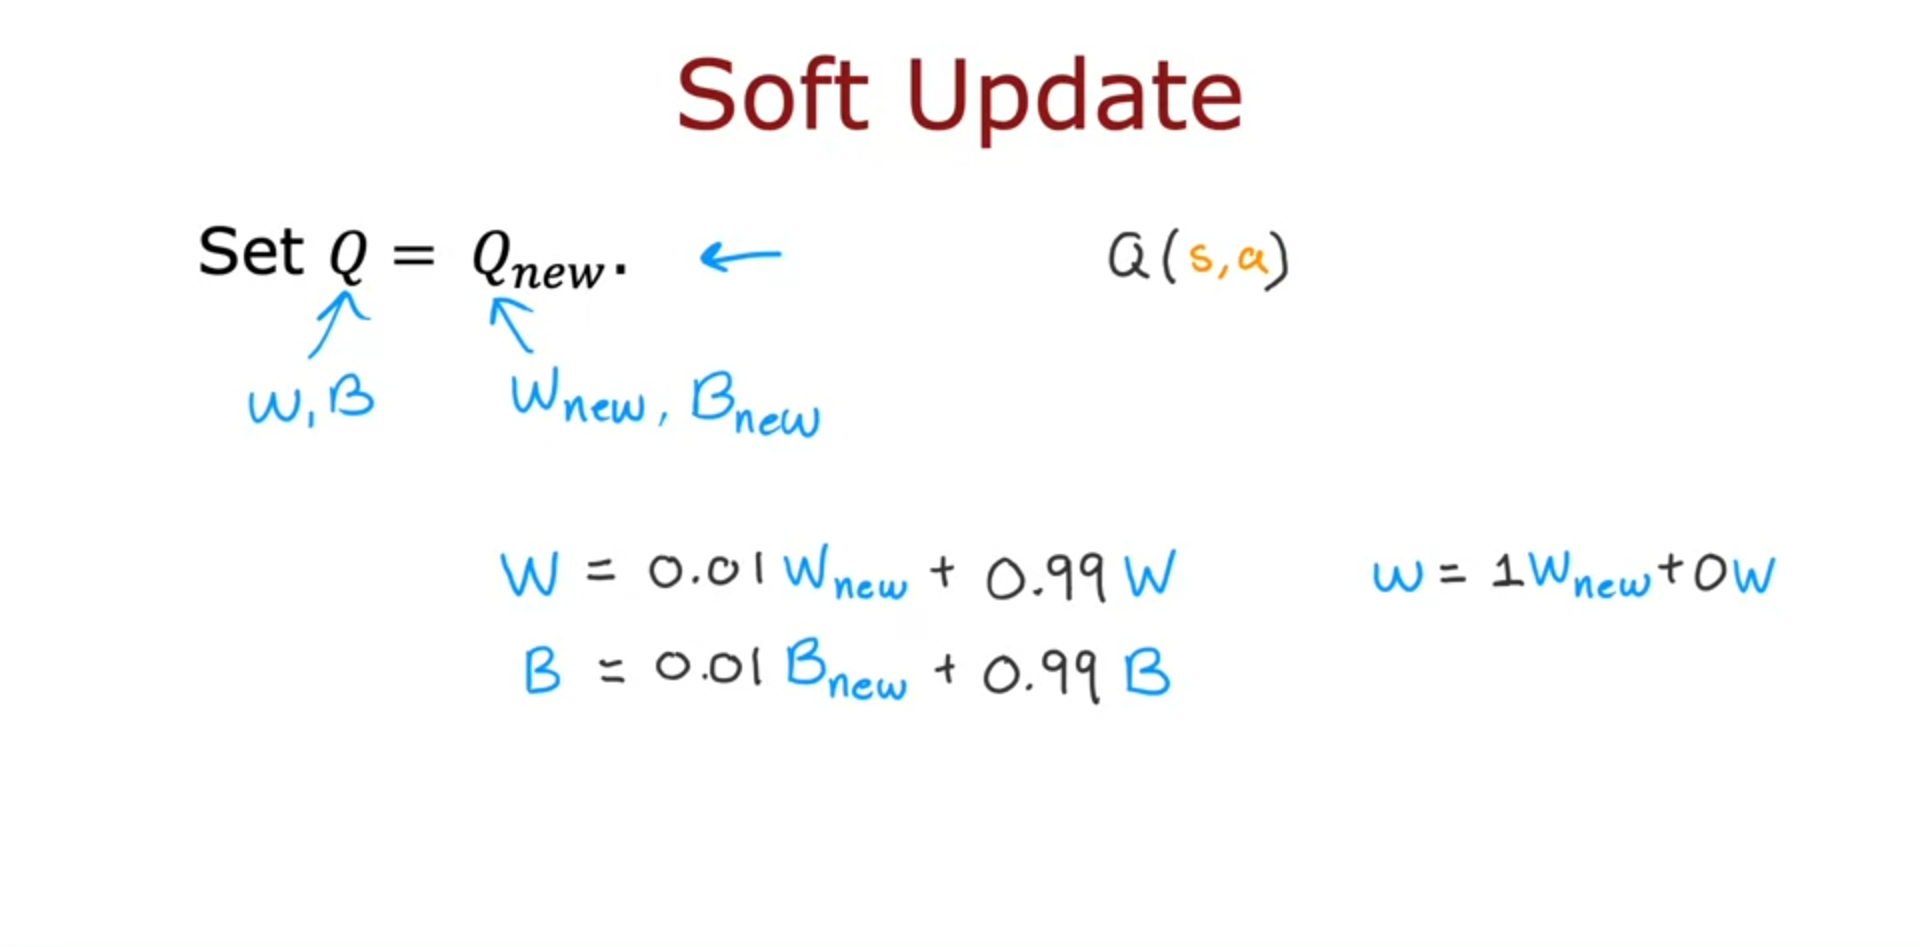 Soft Update
Set Q = Q_new. ← Q(s,a)
W, B W_new, B_new
W = 0.01 W_new + 0.99 W W = 1W_new + 0W
B = 0.01 B_new + 0.99 B